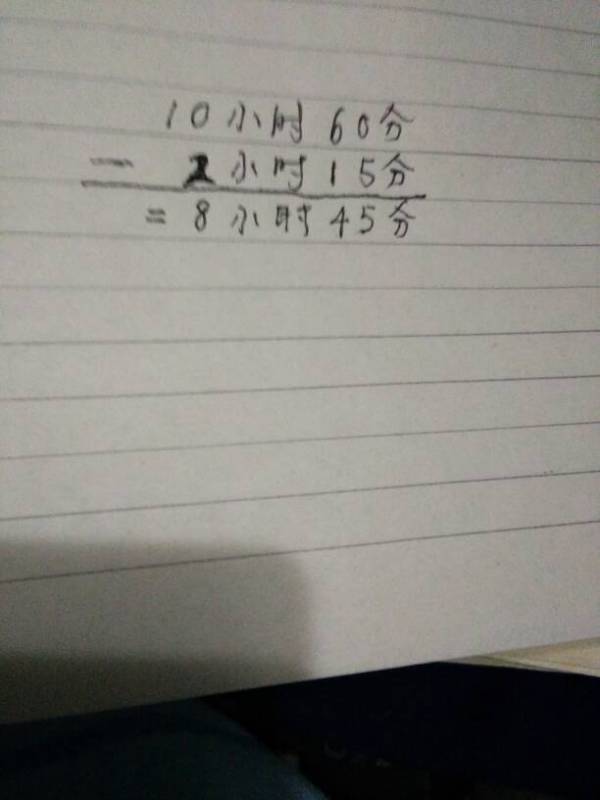 10小时60分
- 2小时15分
= 8小时45分